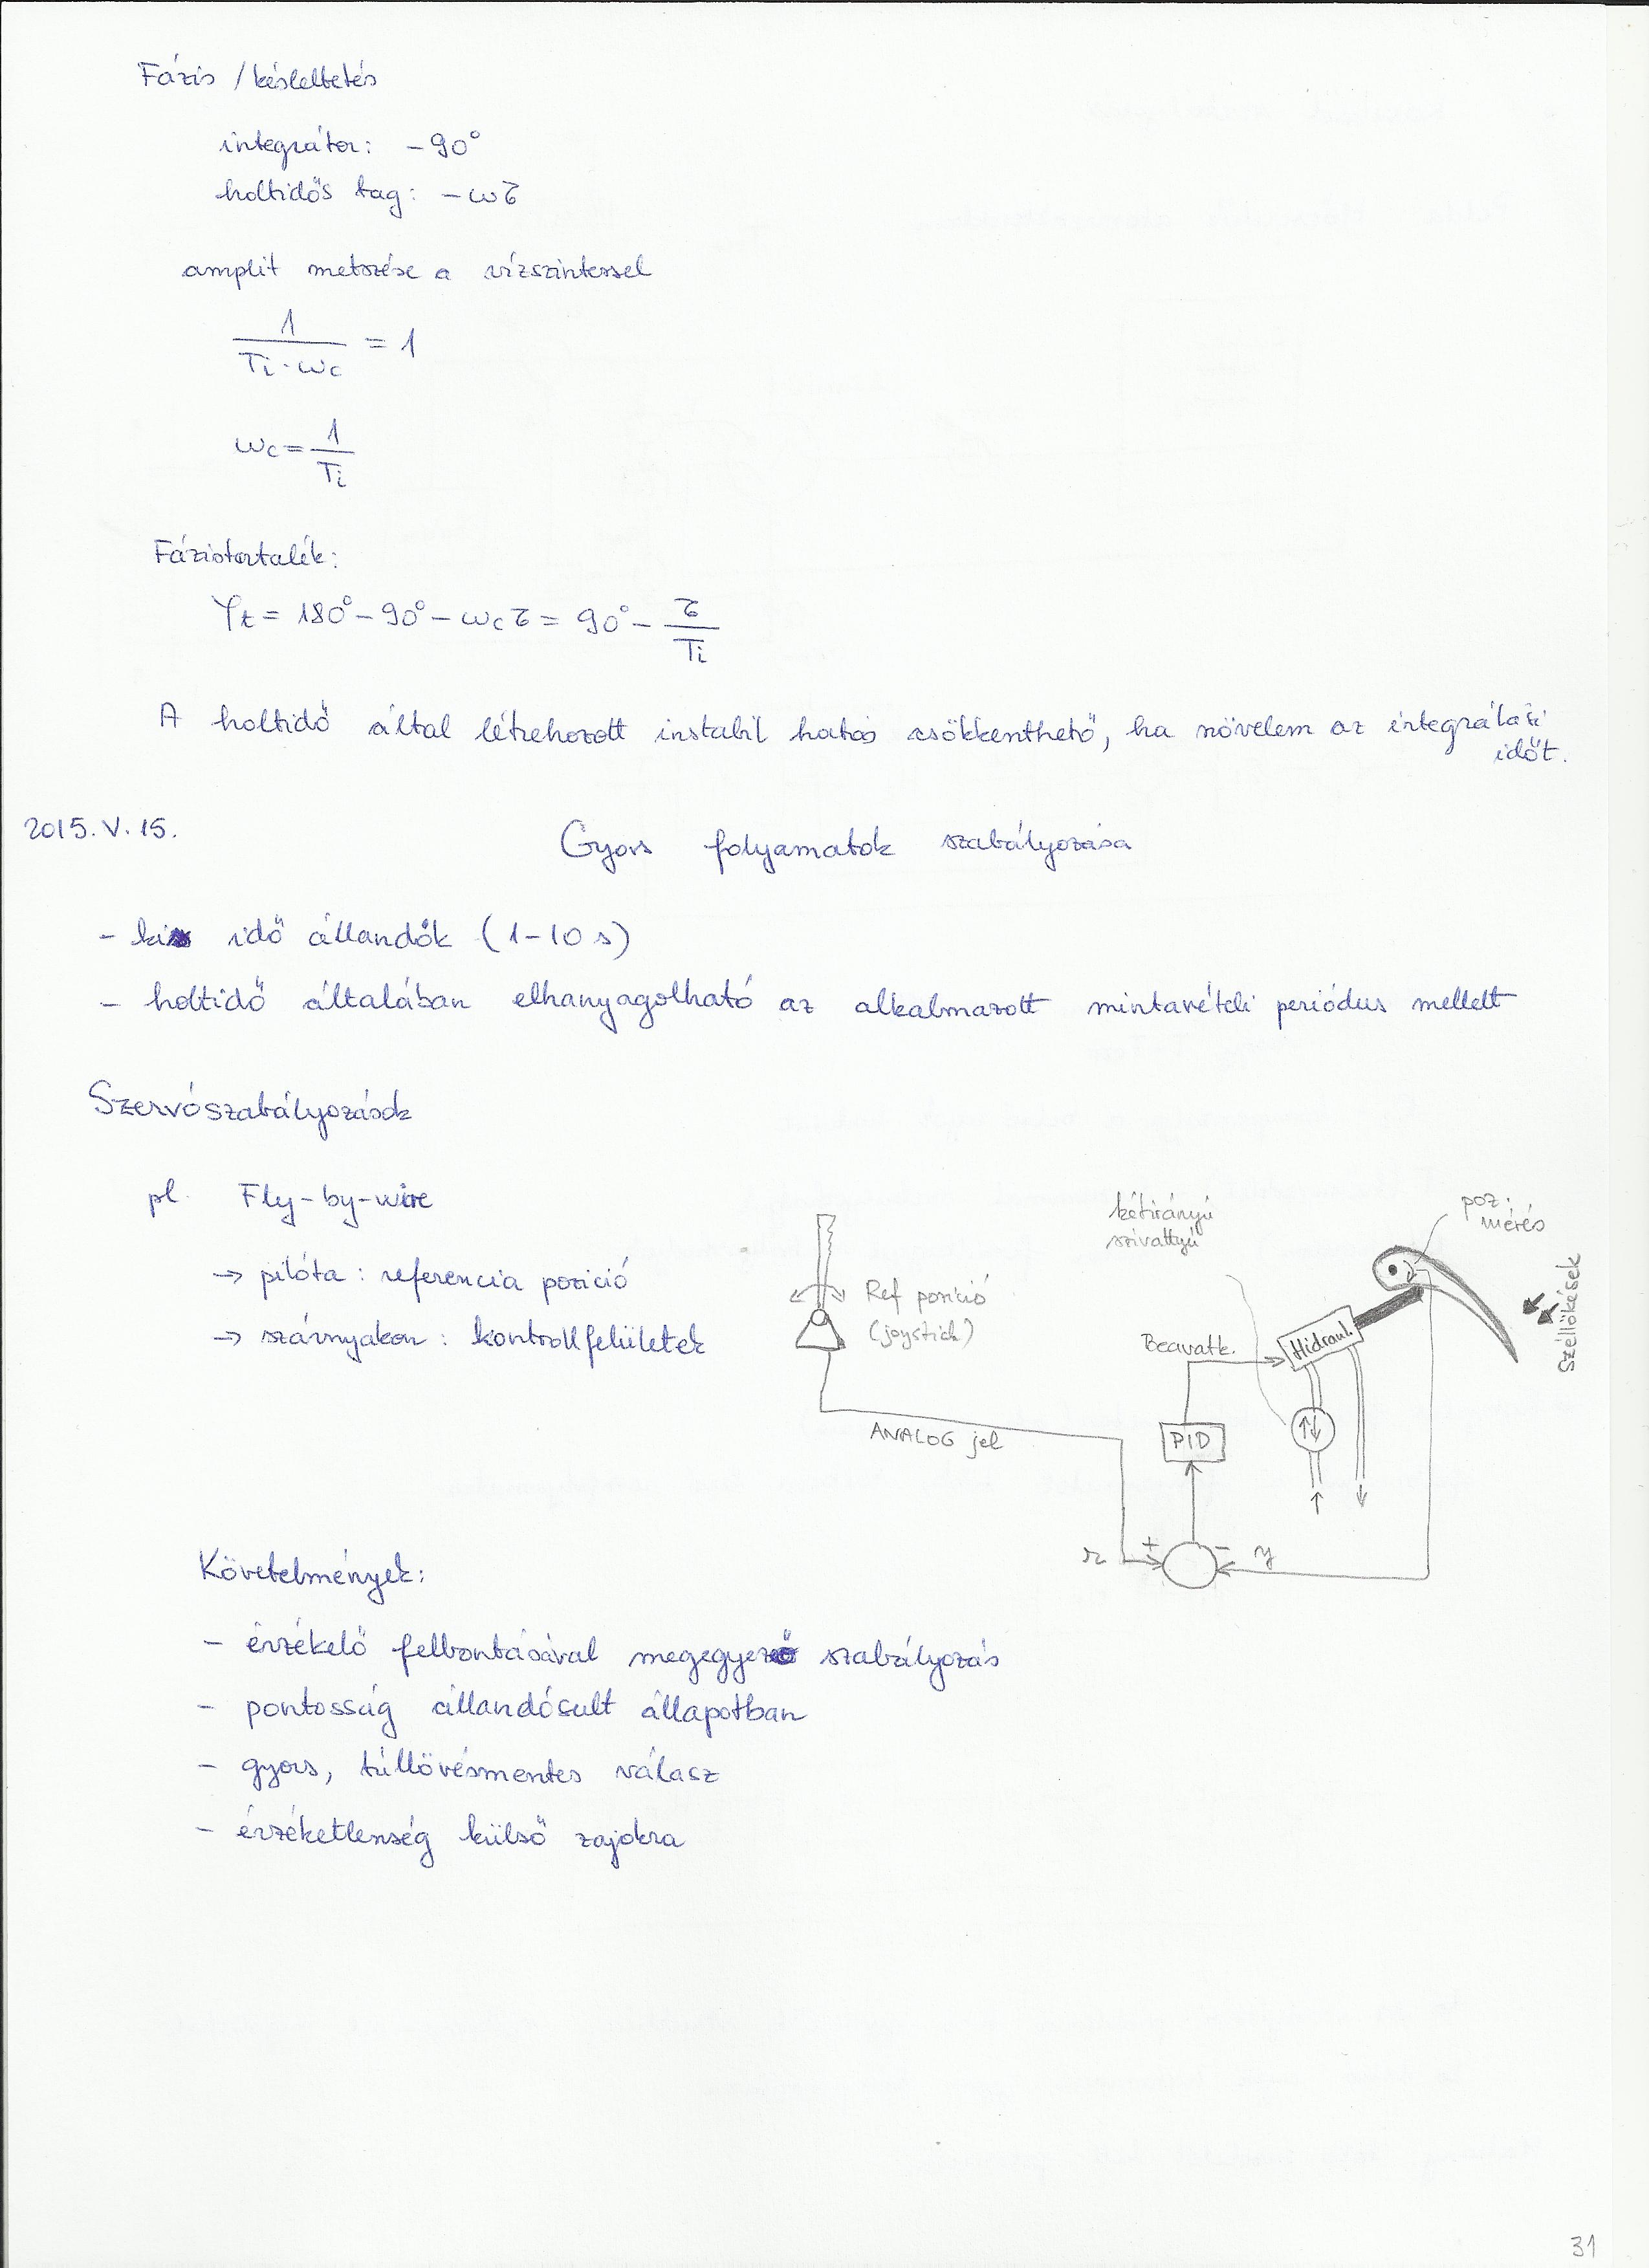 Fázis / késleltetés
integrátor: -90°
holtidős tag: -ωτ
amplit metszése a vízszintessel
1 / (Ti·ωc) = 1
ωc = 1 / Ti
Fázistartalék:
φt = 180° - 90° - ωcτ = 90° - τ / Ti
A holtidő által létrehozott instabil hatás csökkenthető, ha növelem az integrálási
időt.
2015. V. 15.
Gyors folyamatok szabályozása
- kis idő állandók (1-10 s)
- holtidő általában elhanyagolható az alkalmazott mintavételi periódus mellett
Szervószabályozások
pl. Fly-by-wire
→ pilóta: referencia pozició
→ szárnyakon: kontrollfelületek
Ref pozició
(joystick)
ANALOG jel
kétirányú
szivattyú
poz.
mérés
Széllökések
Beavatk.
Hidraul.
PID
r + - y
Követelmények:
- érzékelő felbontásával megegyező szabályozás
- pontosság állandósult állapotban
- gyors, túllövésmentes válasz
- érzéketlenség külső zajokra
31